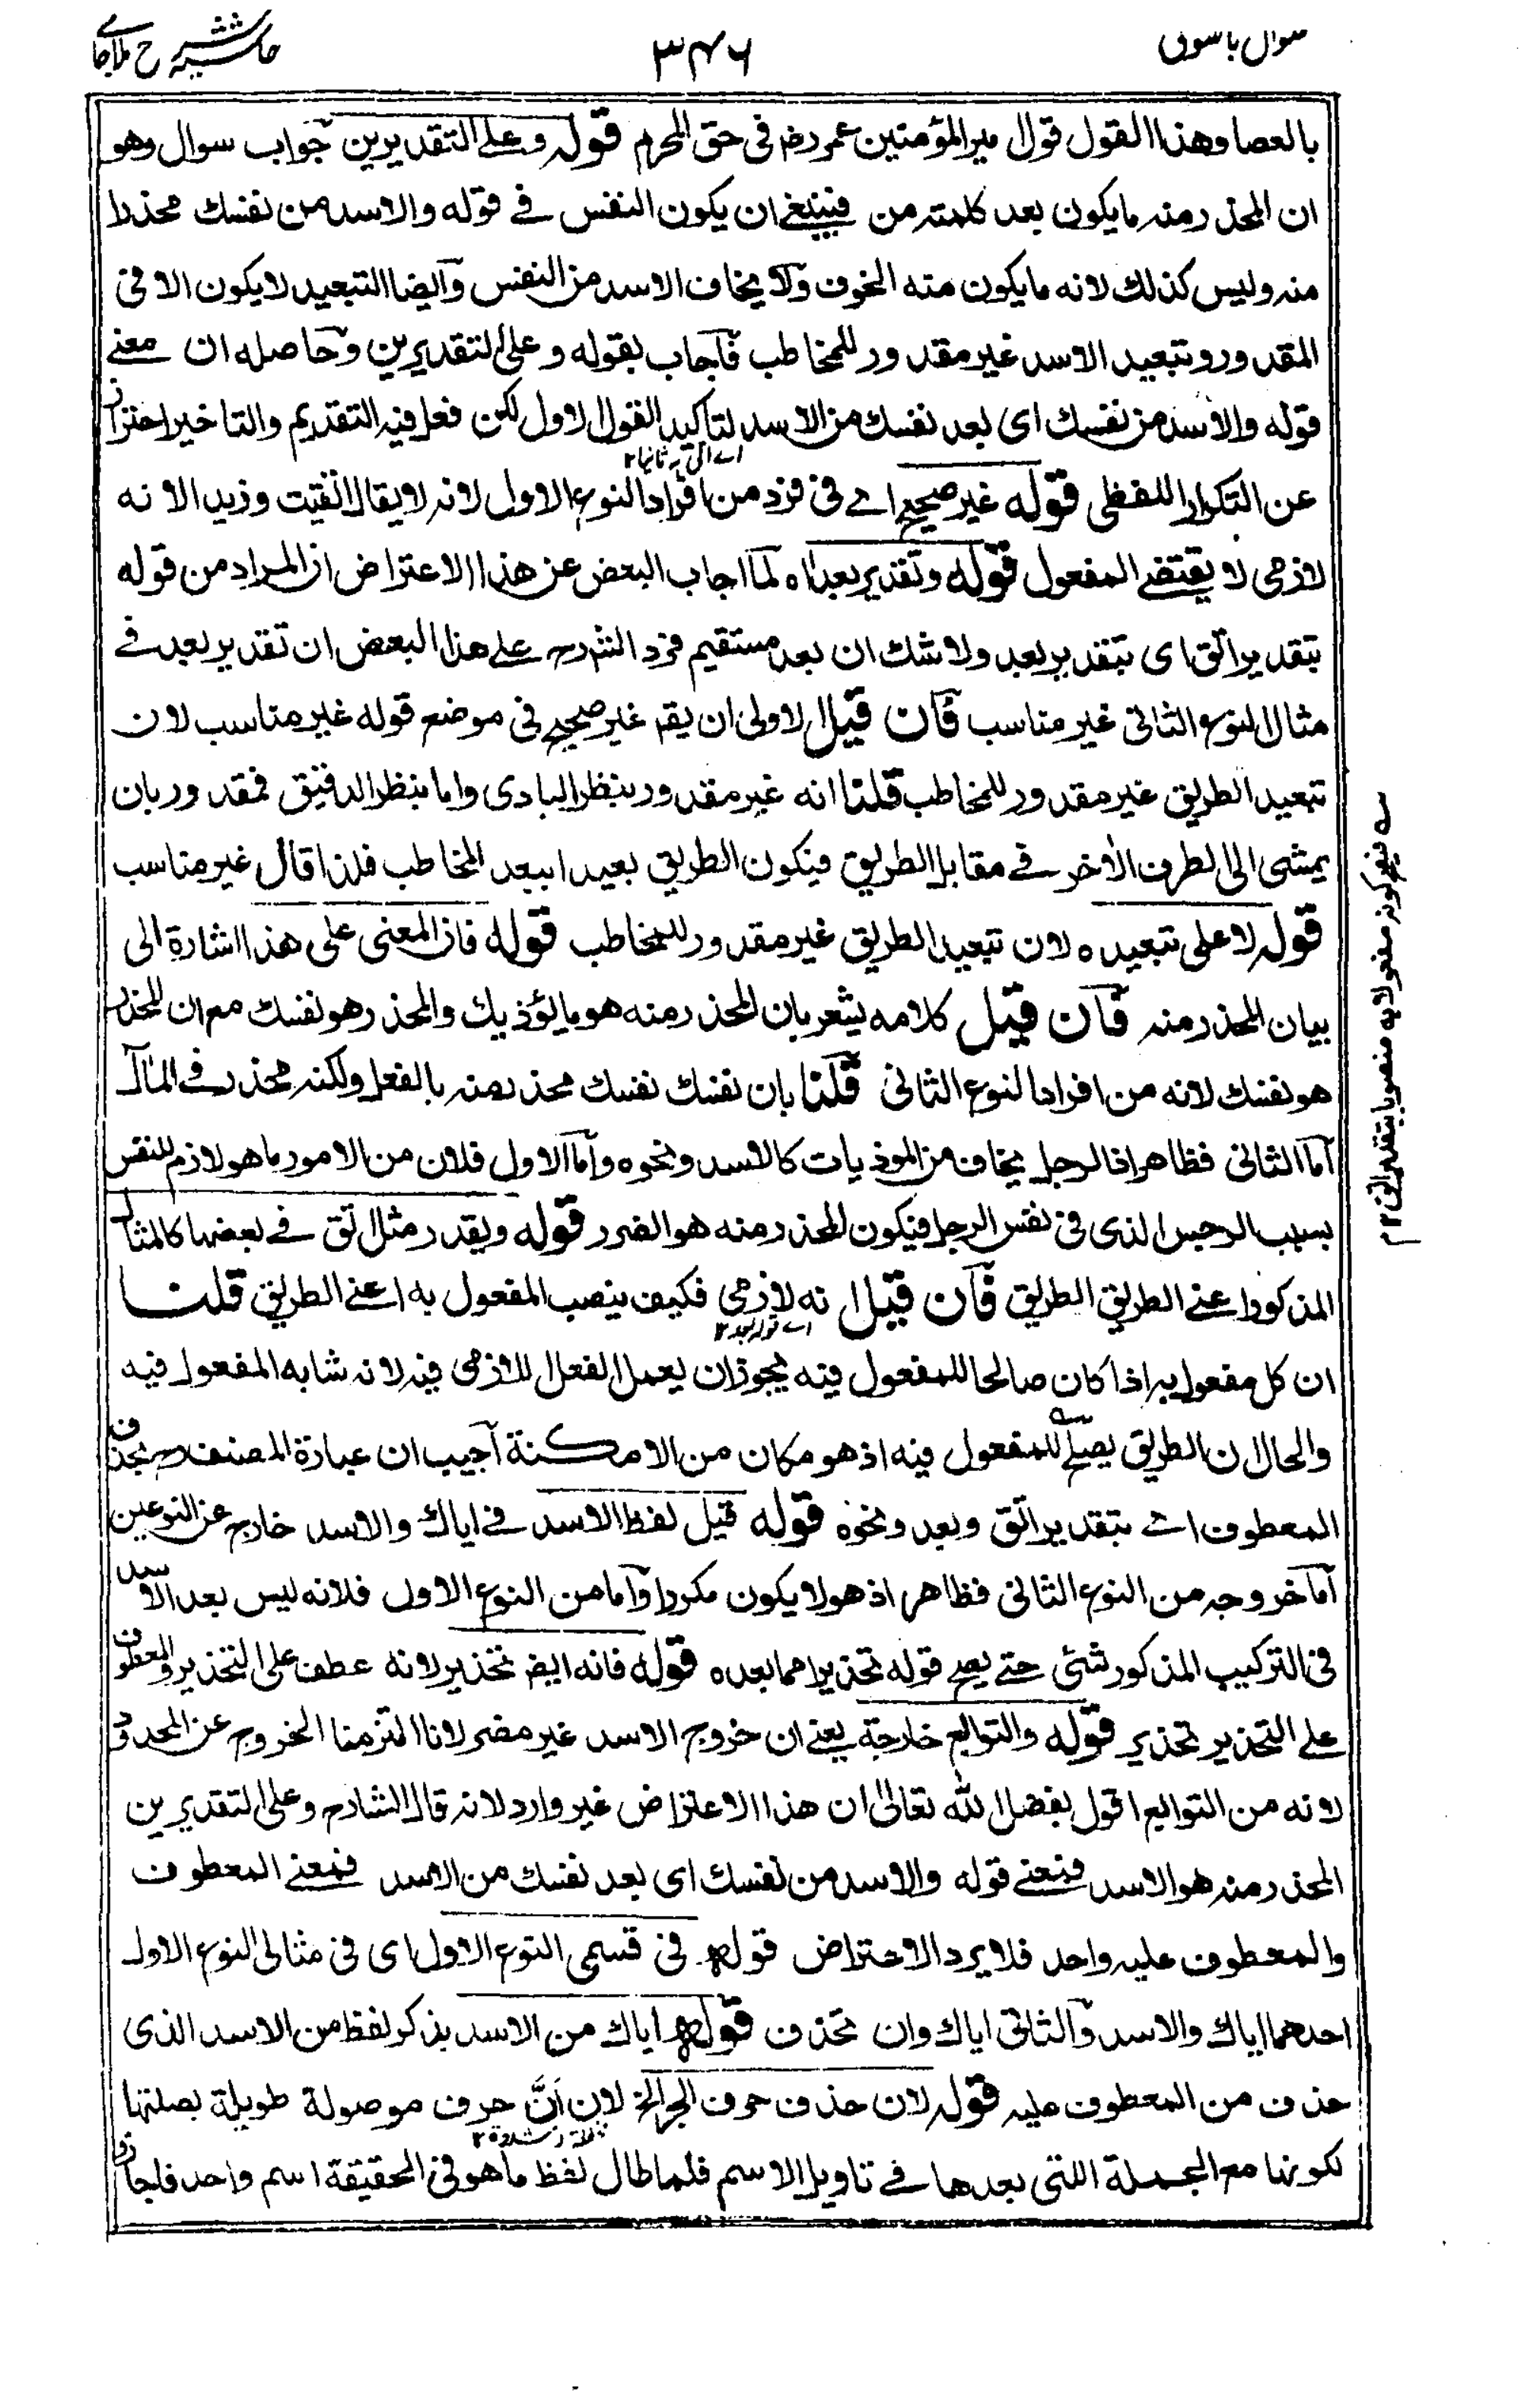 سوال باسولی ۳۴۶ حاشیه شرح ملاجامی
بالعصا وهذا القول قول امیر المؤمنین عمر رضہ فی حق المحرم قوله وعلی التقدیرین جواب سوال وهو
ان المحذر منه ما یکون بعد کلمته من فینبغے ان یکون النفس فے قوله والاسد من نفسك محذرا
منه ولیس کذلك لانه ما یکون منه الخوف ولا یخاف الاسد من النفس وایضا التبعید لا یکون الا فی
المقدور وتبعید الاسد غیر مقدور للمخاطب فاجاب بقوله وعلی التقدیرین وحاصله ان معنے
قوله والاسد من نفسك ای بعد نفسك من الاسد لتاکید القول الاول لکن فعل فیه التقدیم والتاخیر احترازا
عن التکرار اللفظی قوله غیر صحیح اے فی فرد من افراد النوع الاول لانه لا یقال اتقیت زیدا لانه
لازمی لا یقتضے المفعول قوله وتقدیر بعد اه لما اجاب البعض عن هذا الاعتراض ان المراد من قوله
بتقدیر اتق ای بتقدیر بعد ولا شك ان بعد مستقیم فرد الشارح علے هذا البعض ان تقدیر بعد فے
مثال النوع الثانی غیر مناسب فان قیل الاولی ان یقہ غیر صحیح فی موضع قوله غیر مناسب لان
تبعید الطریق غیر مقدور للمخاطب قلنا انه غیر مقدور بنظر البادی واما بنظر الدقیق فمقدور بان
یمشی الی الطرف الاخر فے مقابل الطریق فیکون الطریق بعیدا ببعد المخاطب فلذا قال غیر مناسب
قوله لا علی تبعیده لان تبعید الطریق غیر مقدور للمخاطب قوله فان المعنی علی هذا اشارة الی
بیان المحذر منه فان قیل کلامه یشعر بان المحذر منه هو ما یؤذیك والمحذر هو نفسك مع ان المحذر
هو نفسك لانه من افراد النوع الثانی قلنا بان نفسك نفسك محذر منه بالفعل ولکنه محذر فے المآل
اما الثانی فظاهر اذ الرجل یخاف من الموذیات کالاسد ونحوه واما الاول فلان من الامور ما هو لازم للنفس
بسبب الرحیس الذی فی نفس الرجل فیکون المحذر منه هو الضرر قوله ویقدر مثل اتق فے بعضها کالمثال
المذکور اعنے الطریق الطریق فان قیل انه لازمی فکیف ینصب المفعول به اعنے الطریق قلنا
ان کل مفعول به اذا کان صالحا للمفعول فیه یجوز ان یعمل الفعل اللازمی فیه لانه شابه المفعول فیه
والحال ان الطریق یصلح للمفعول فیه اذ هو مکان من الامکنة اجیب ان عبارة المصنف رح بحذف
المعطوف اے بتقدیر اتق وبعد ونحوه قوله قیل لفظ الاسد فے ایاك والاسد خارج عن النوعین
اما خروجه من النوع الثانی فظاهر اذ هو لا یکون مکررا واما من النوع الاول فلانه لیس بعد الاسد
فی الترکیب المذکور شئی حتے یصح قوله تحذیرا مما بعده قوله فانه ایضہ تحذیر لانه عطف علی التحذیر والمعطوف
علے التحذیر تحذیر قوله والتوابع خارجة یعنے ان خروج الاسد غیر مضر لانا التزمنا الخروج عن المحدود
لانه من التوابع اقول بفضل الله تعالیٰ ان هذا الاعتراض غیر وارد لانه قال الشارح وعلی التقدیرین
المحذر منه هو الاسد فمعنے قوله والاسد من نفسك ای بعد نفسك من الاسد فمعنے المعطوف
والمعطوف علیه واحد فلا یرد الاعتراض قوله فی قسمی النوع الاول ای فی مثالی النوع الاول
احدهما ایاك والاسد والثانی ایاك وان تحذف قوله ایاك من الاسد بذکر لفظ من الاسد الذی
حذف من المعطوف علیه قوله لان حذف حرف الجر الخ لان اَنَّ حرف موصولة طویلة بصلتها
لکونها مع الجملة اللتی بعدها فے تاویل الاسم فلما طال لفظ ما هو فی الحقیقة اسم واحد فلجا